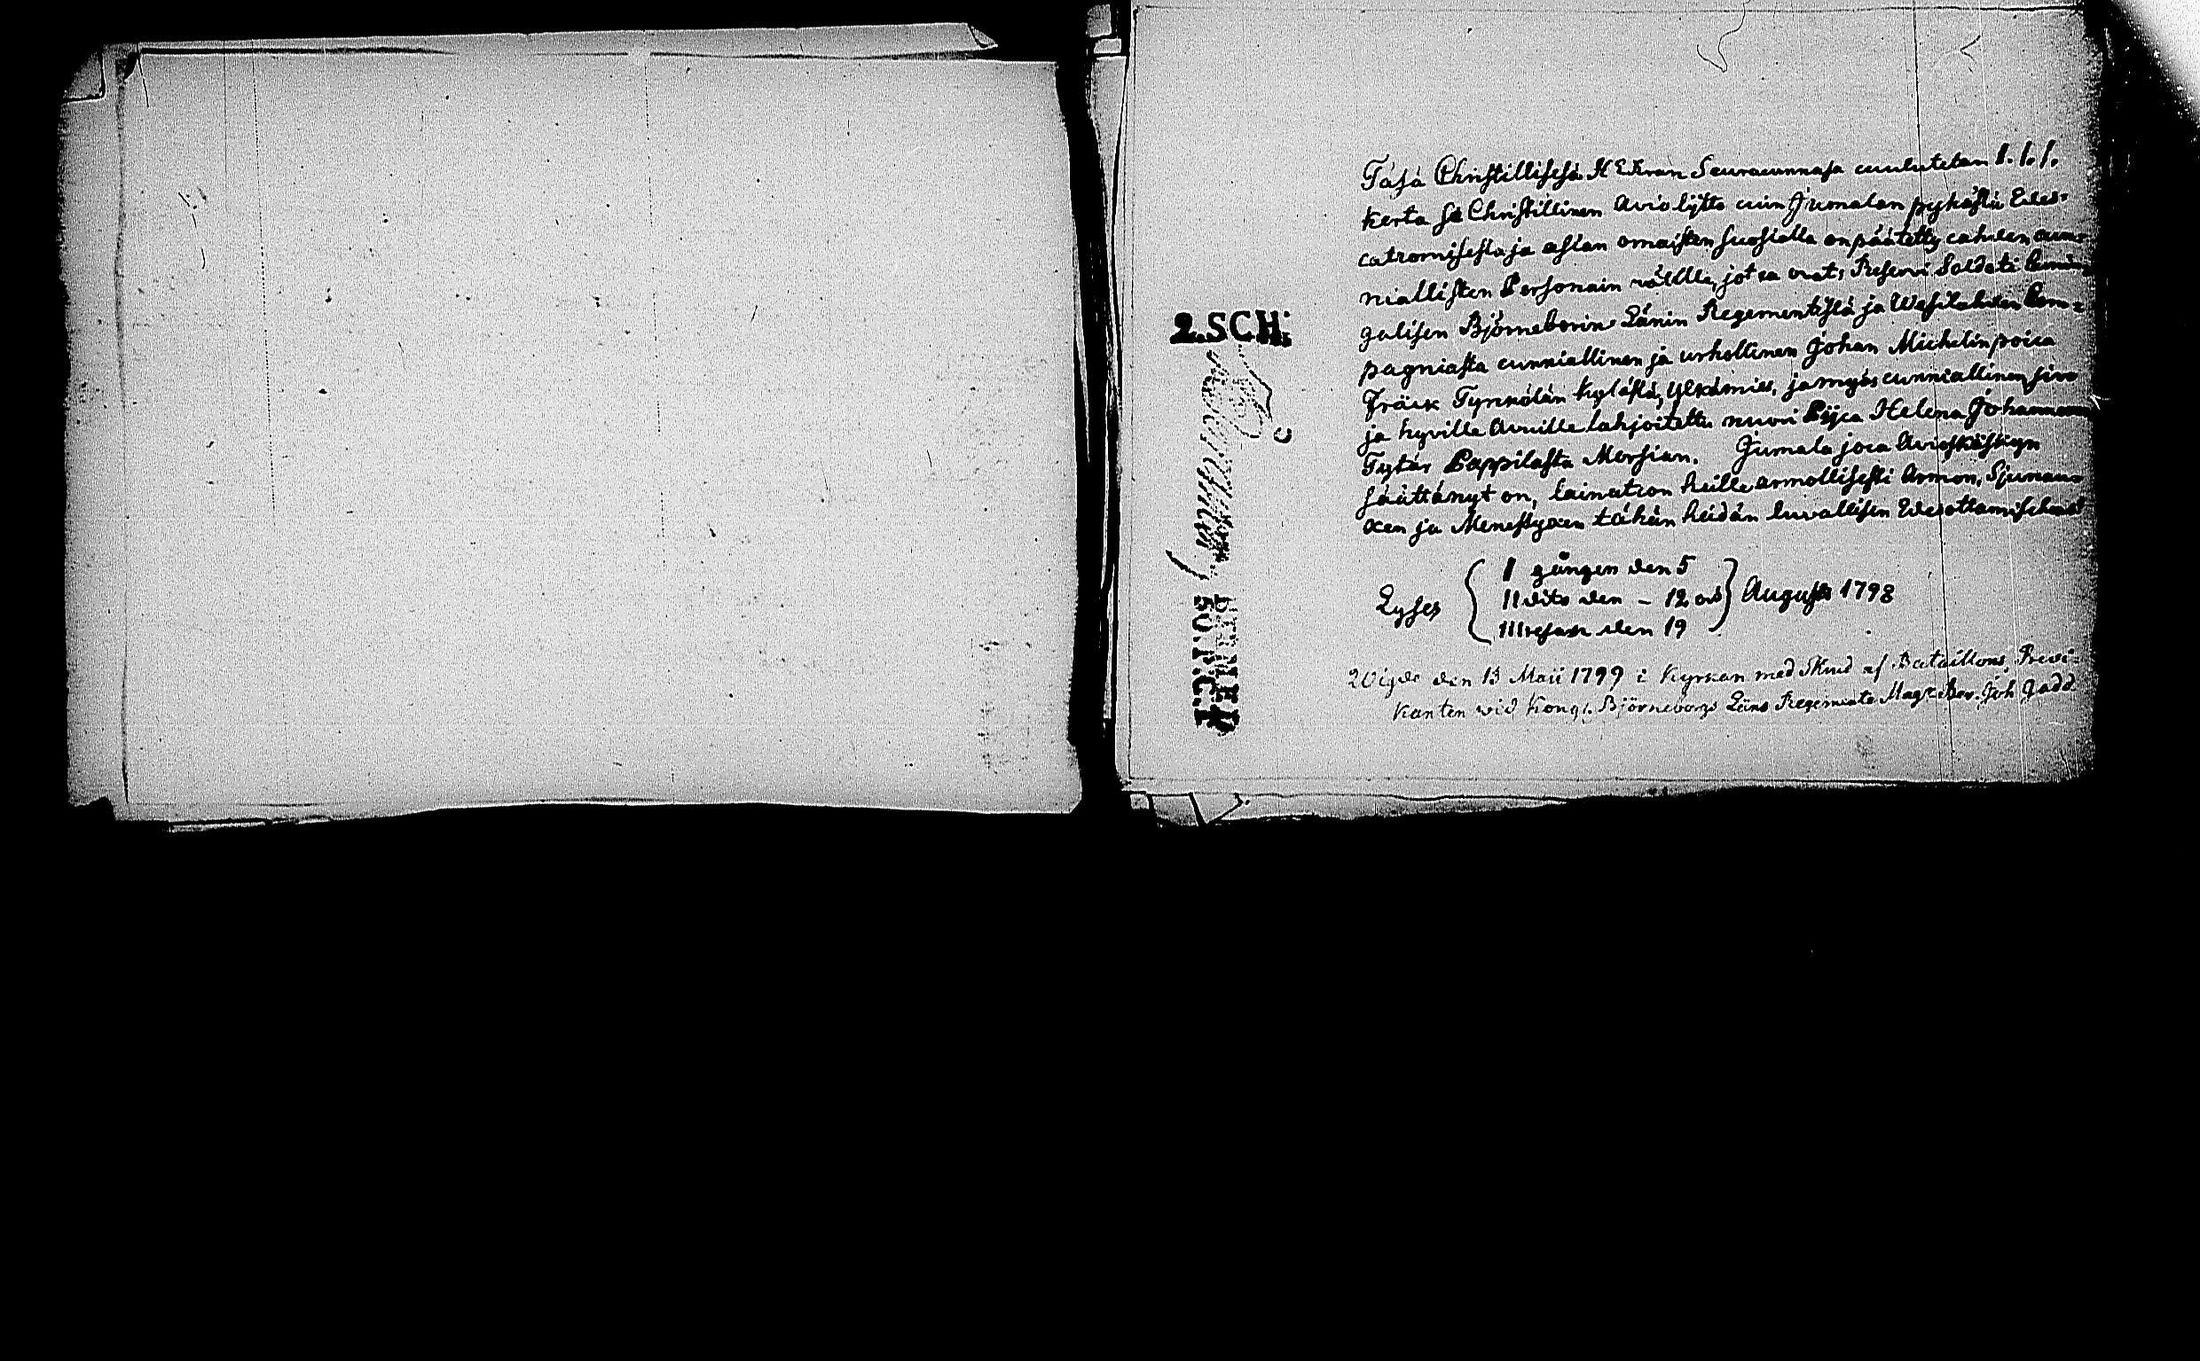 2.SCH:
Täsä Christillisesä HERran Seuracunnasa cuulutetan 1. 1. 1.
kerta se Christillinen Avioliitto cuin Jumalan pyhästä Edes-
catzomisesta ja asian omaisten suosiolla on päätetty cahden cun-
niallisten Personain välille, jotca ovat; Reservi Soldati Cunin-
galisen Björneborin Länin Regementistä ja Wesilahden Com-
pagniasta cunniallinen ja urhollinen Johan Michelinpoica
Fräsk Tyrkölän kylästä, Ylkämies, ja myös cunniallinen, siviä
ja hyville Avuille lahjoitettu nuori Pijca Helena Johannexen
Tytär Pappilasta Morsian. Jumala joca Aviokäskyn
säättänyt on, lainatcon heille armollisesti Armon, Sjunauxen
xen ja Menestyxen tähän heidän luvallisen Edesottamisehens
Lyses
I gången den 5
II dito den – 12 och
III resan den 19
Augusti 1798
Wigde den 13 Maii 1799 i Kyrkan med Skrud af Bataillons Predi-
kanten wid Kongl. Björneborgs Läns Regemente Mag:r Joh Gadd